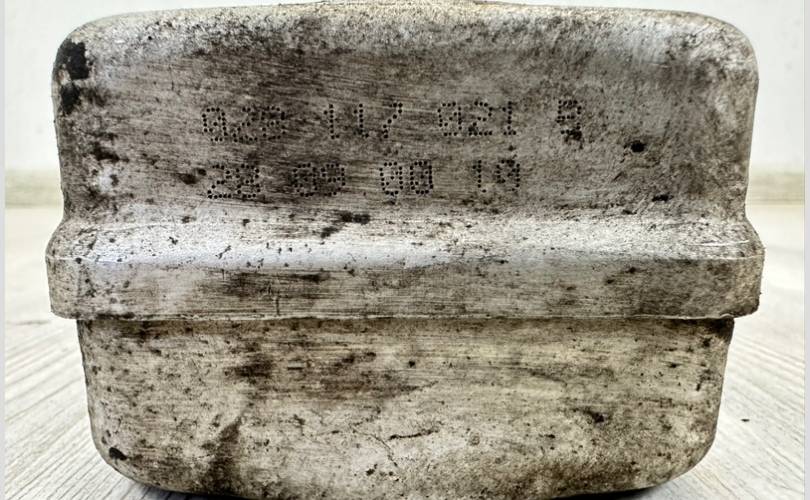 028 117 021 B
28 09 00 19